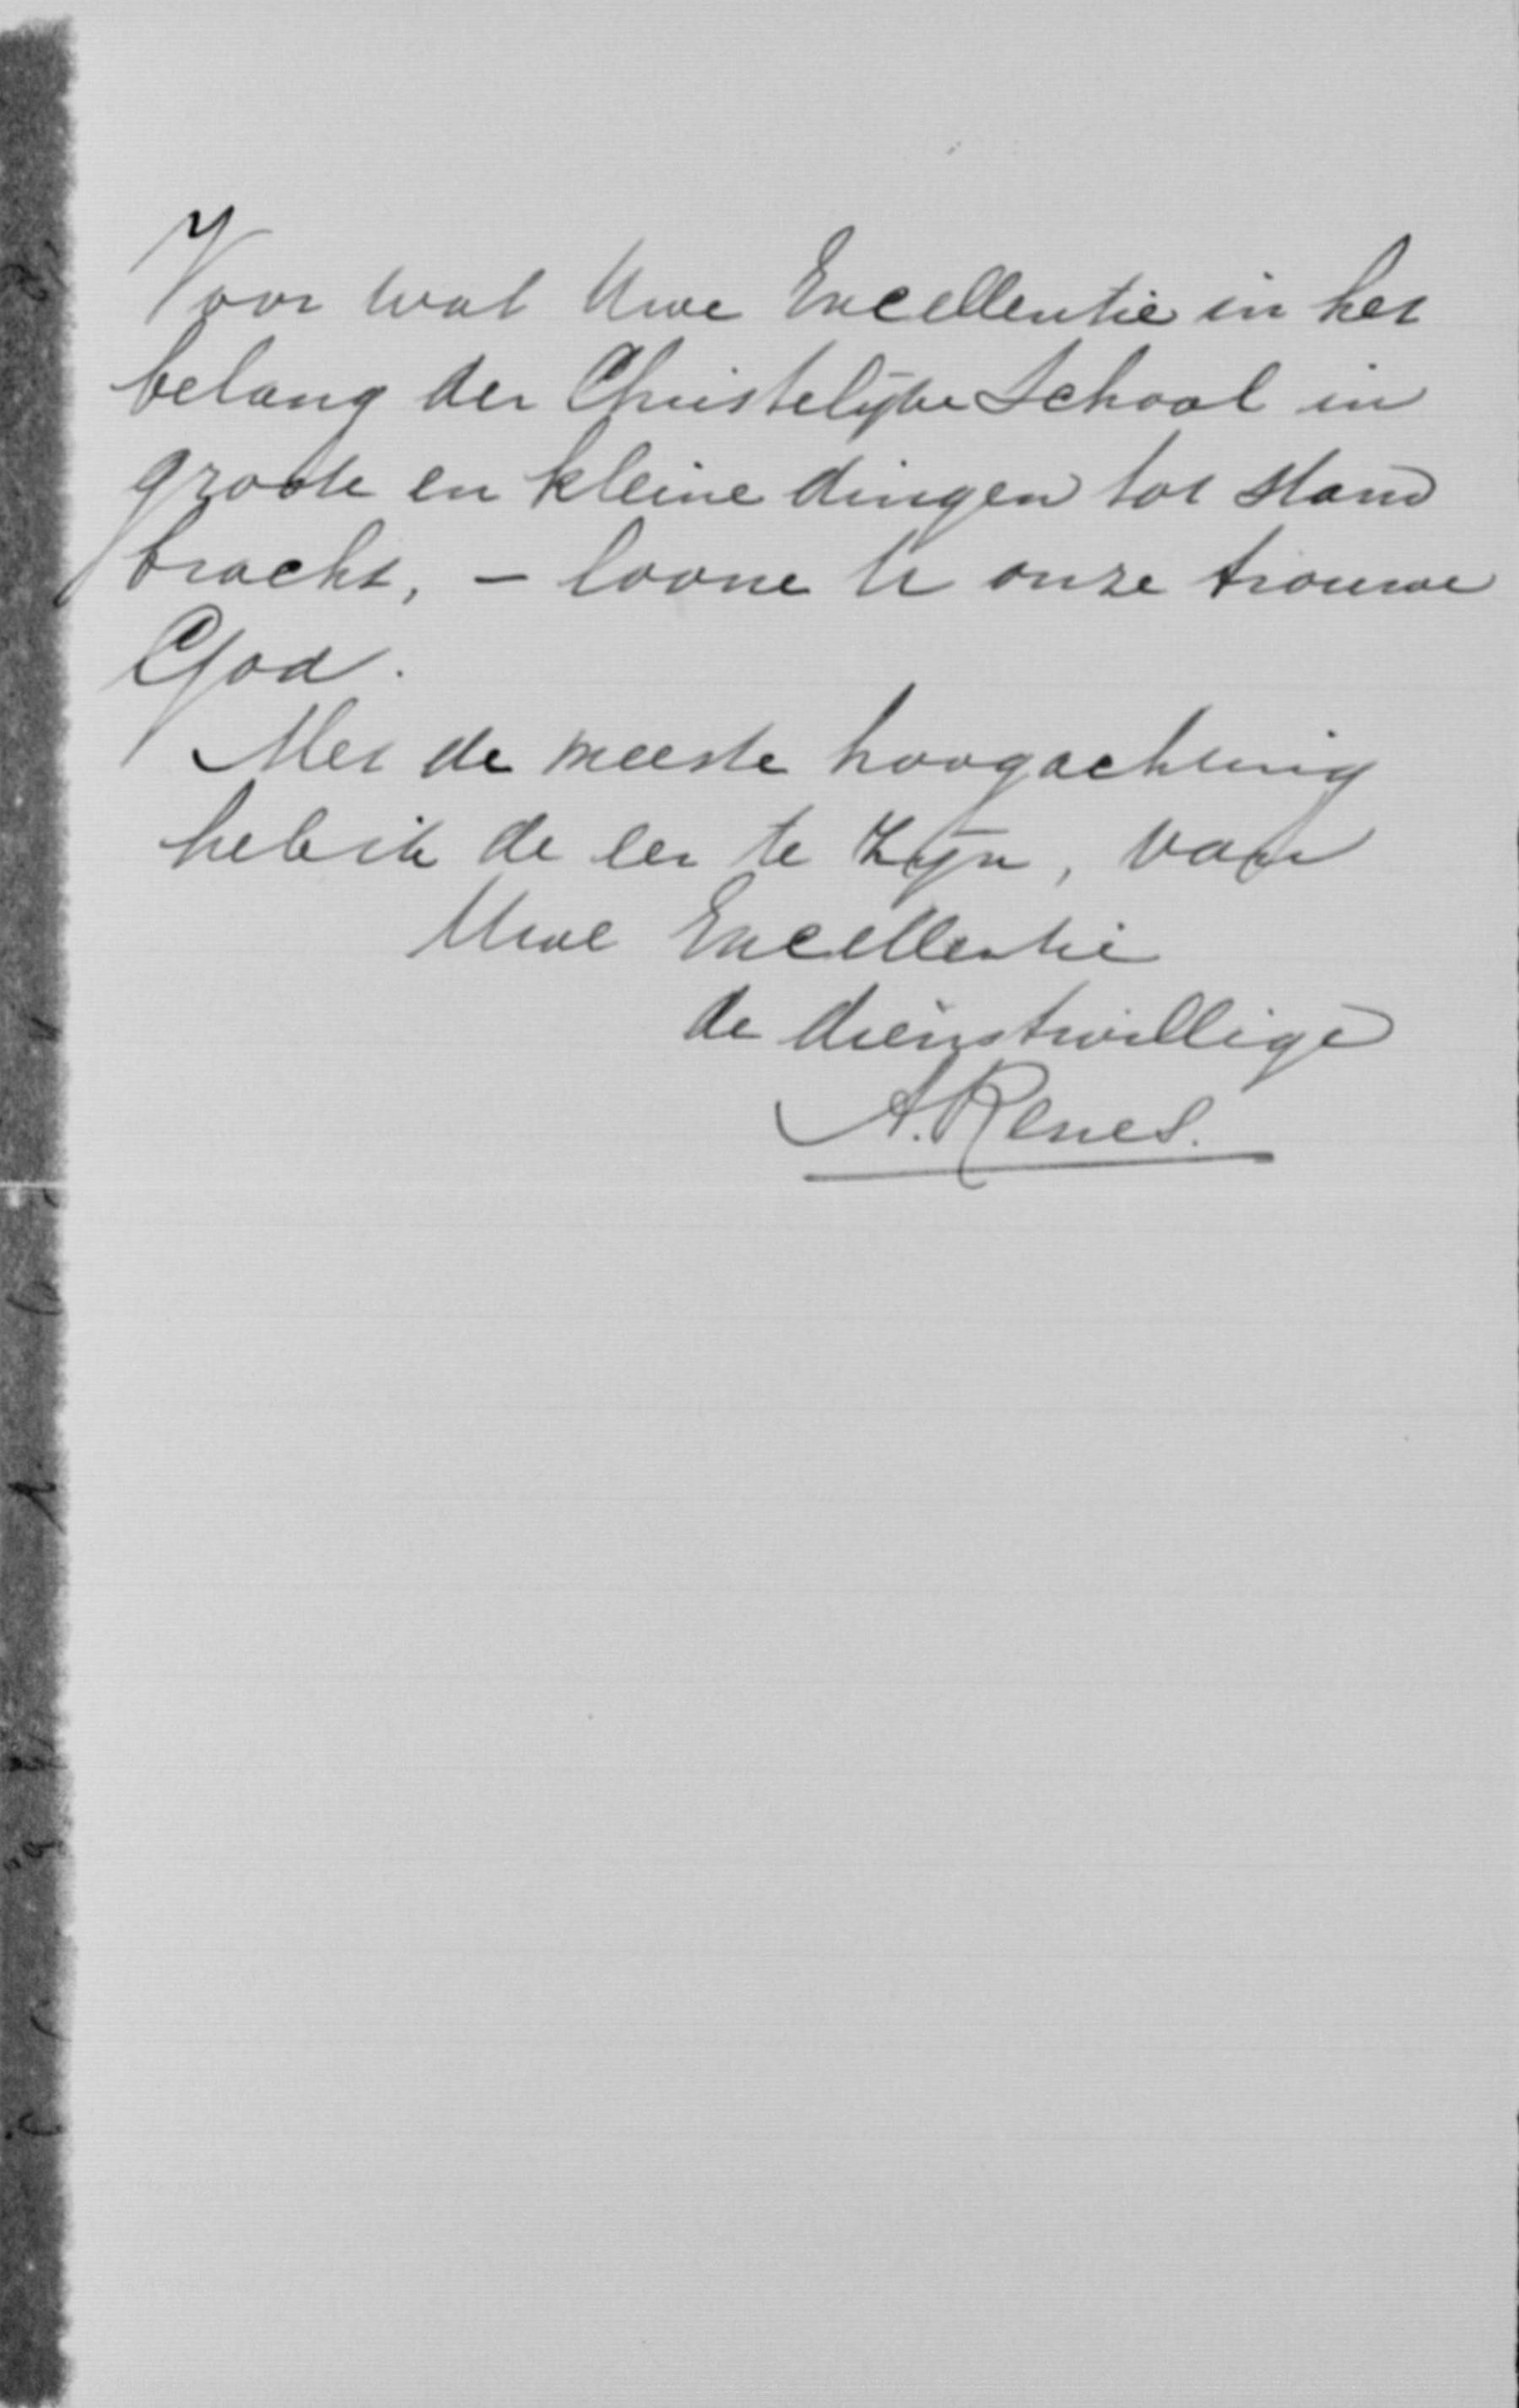 Voor wat Uwe Excellentie in het
belang der Christelijke School in
groote en kleine dingen tot stand
bracht, – loone U onze trouwe
God.
Met de meeste hoogachting
heb ik de eer te zijn, van
Uwe Excellentie
de dienstwillige
A. Renes.